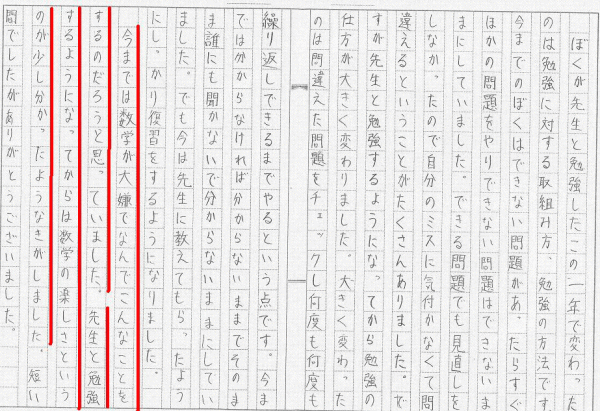 ぼくが先生と勉強したこの一年で変わった
のは勉強に対する取組み方、勉強の方法です
今までのぼくはできない問題があったらすぐ
ほかの問題をやりできない問題はできないま
まにしていました。できる問題でも見直しを
しなかったので自分のミスに気付かなくて間
違えるということがたくさんありました。で
すが先生と勉強するようになってから勉強の
仕方が大きく変わりました。大きく変わった
のは間違えた問題をチェックし何度も何度も
繰り返しできるまでやるという点です。今ま
では分からなければ分からないままでそのま
ま誰にも聞かないで分からないままにしてい
ました。でも今は先生に教えてもらったよう
にしっかり復習をするようになりました。
今までは数学が大嫌でなんでこんなことを
するのだろうと思っていました。先生と勉強
するようになってからは数学の楽しさという
のが少し分かったようなきがしました。短い
間でしたがありがとうございました。